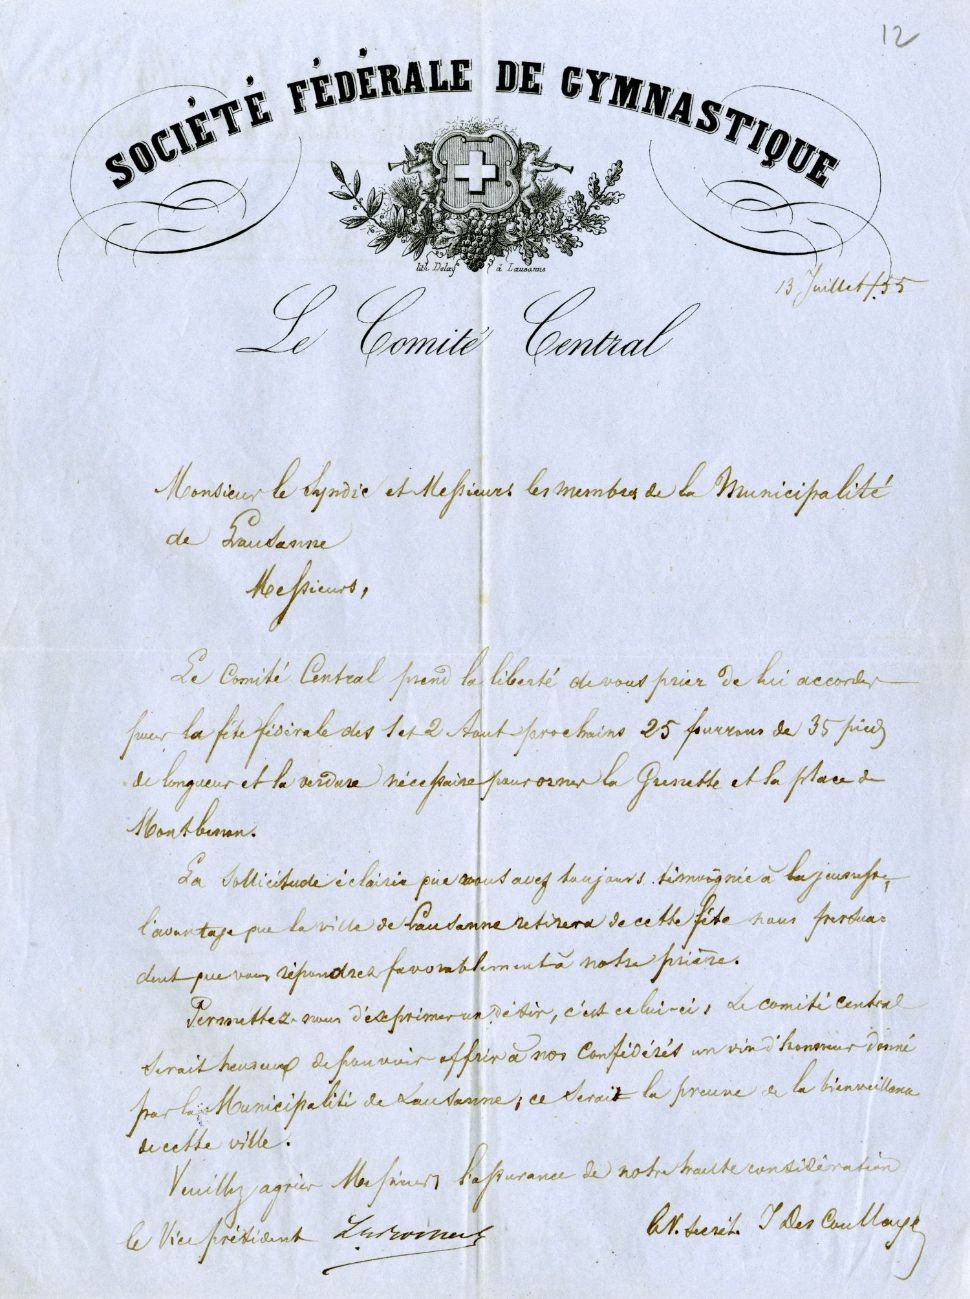 12
SOCIÉTÉ FÉDÉRALE DE GYMNASTIQUE
à Lausanne
13 Juillet /55
Le Comité Central
Monsieur le Syndic et Messieurs les membres de la Municipalité
de Lausanne
Messieurs,
Le Comité Central prend la liberté de vous prier de lui accorder
pour la fête fédérale des 1 et 2 Aout prochains 25 de 35 pieds
de longueur et la verdure nécessaire pour orner la Grenette et la place de
Montbenon.
La sollicitude éclairée que vous avez toujours témoignée à la jeunesse,
l'avantage que la ville de Lausanne retirera de cette fête nous persua-
dent que vous répondrez favorablement à notre prière.
Permettez-nous d'exprimer un désir, c'est celui-ci; Le comité central
serait heureux de pouvoir offrir à nos confédérés un vin d'honneur donné
par la Municipalité de Lausanne; ce serait la preuve de la bienveillance
de cette ville.
Veuillez agréer Messieurs l'assurance de notre haute considération
le Vice président
secrét. J Des Coullayes